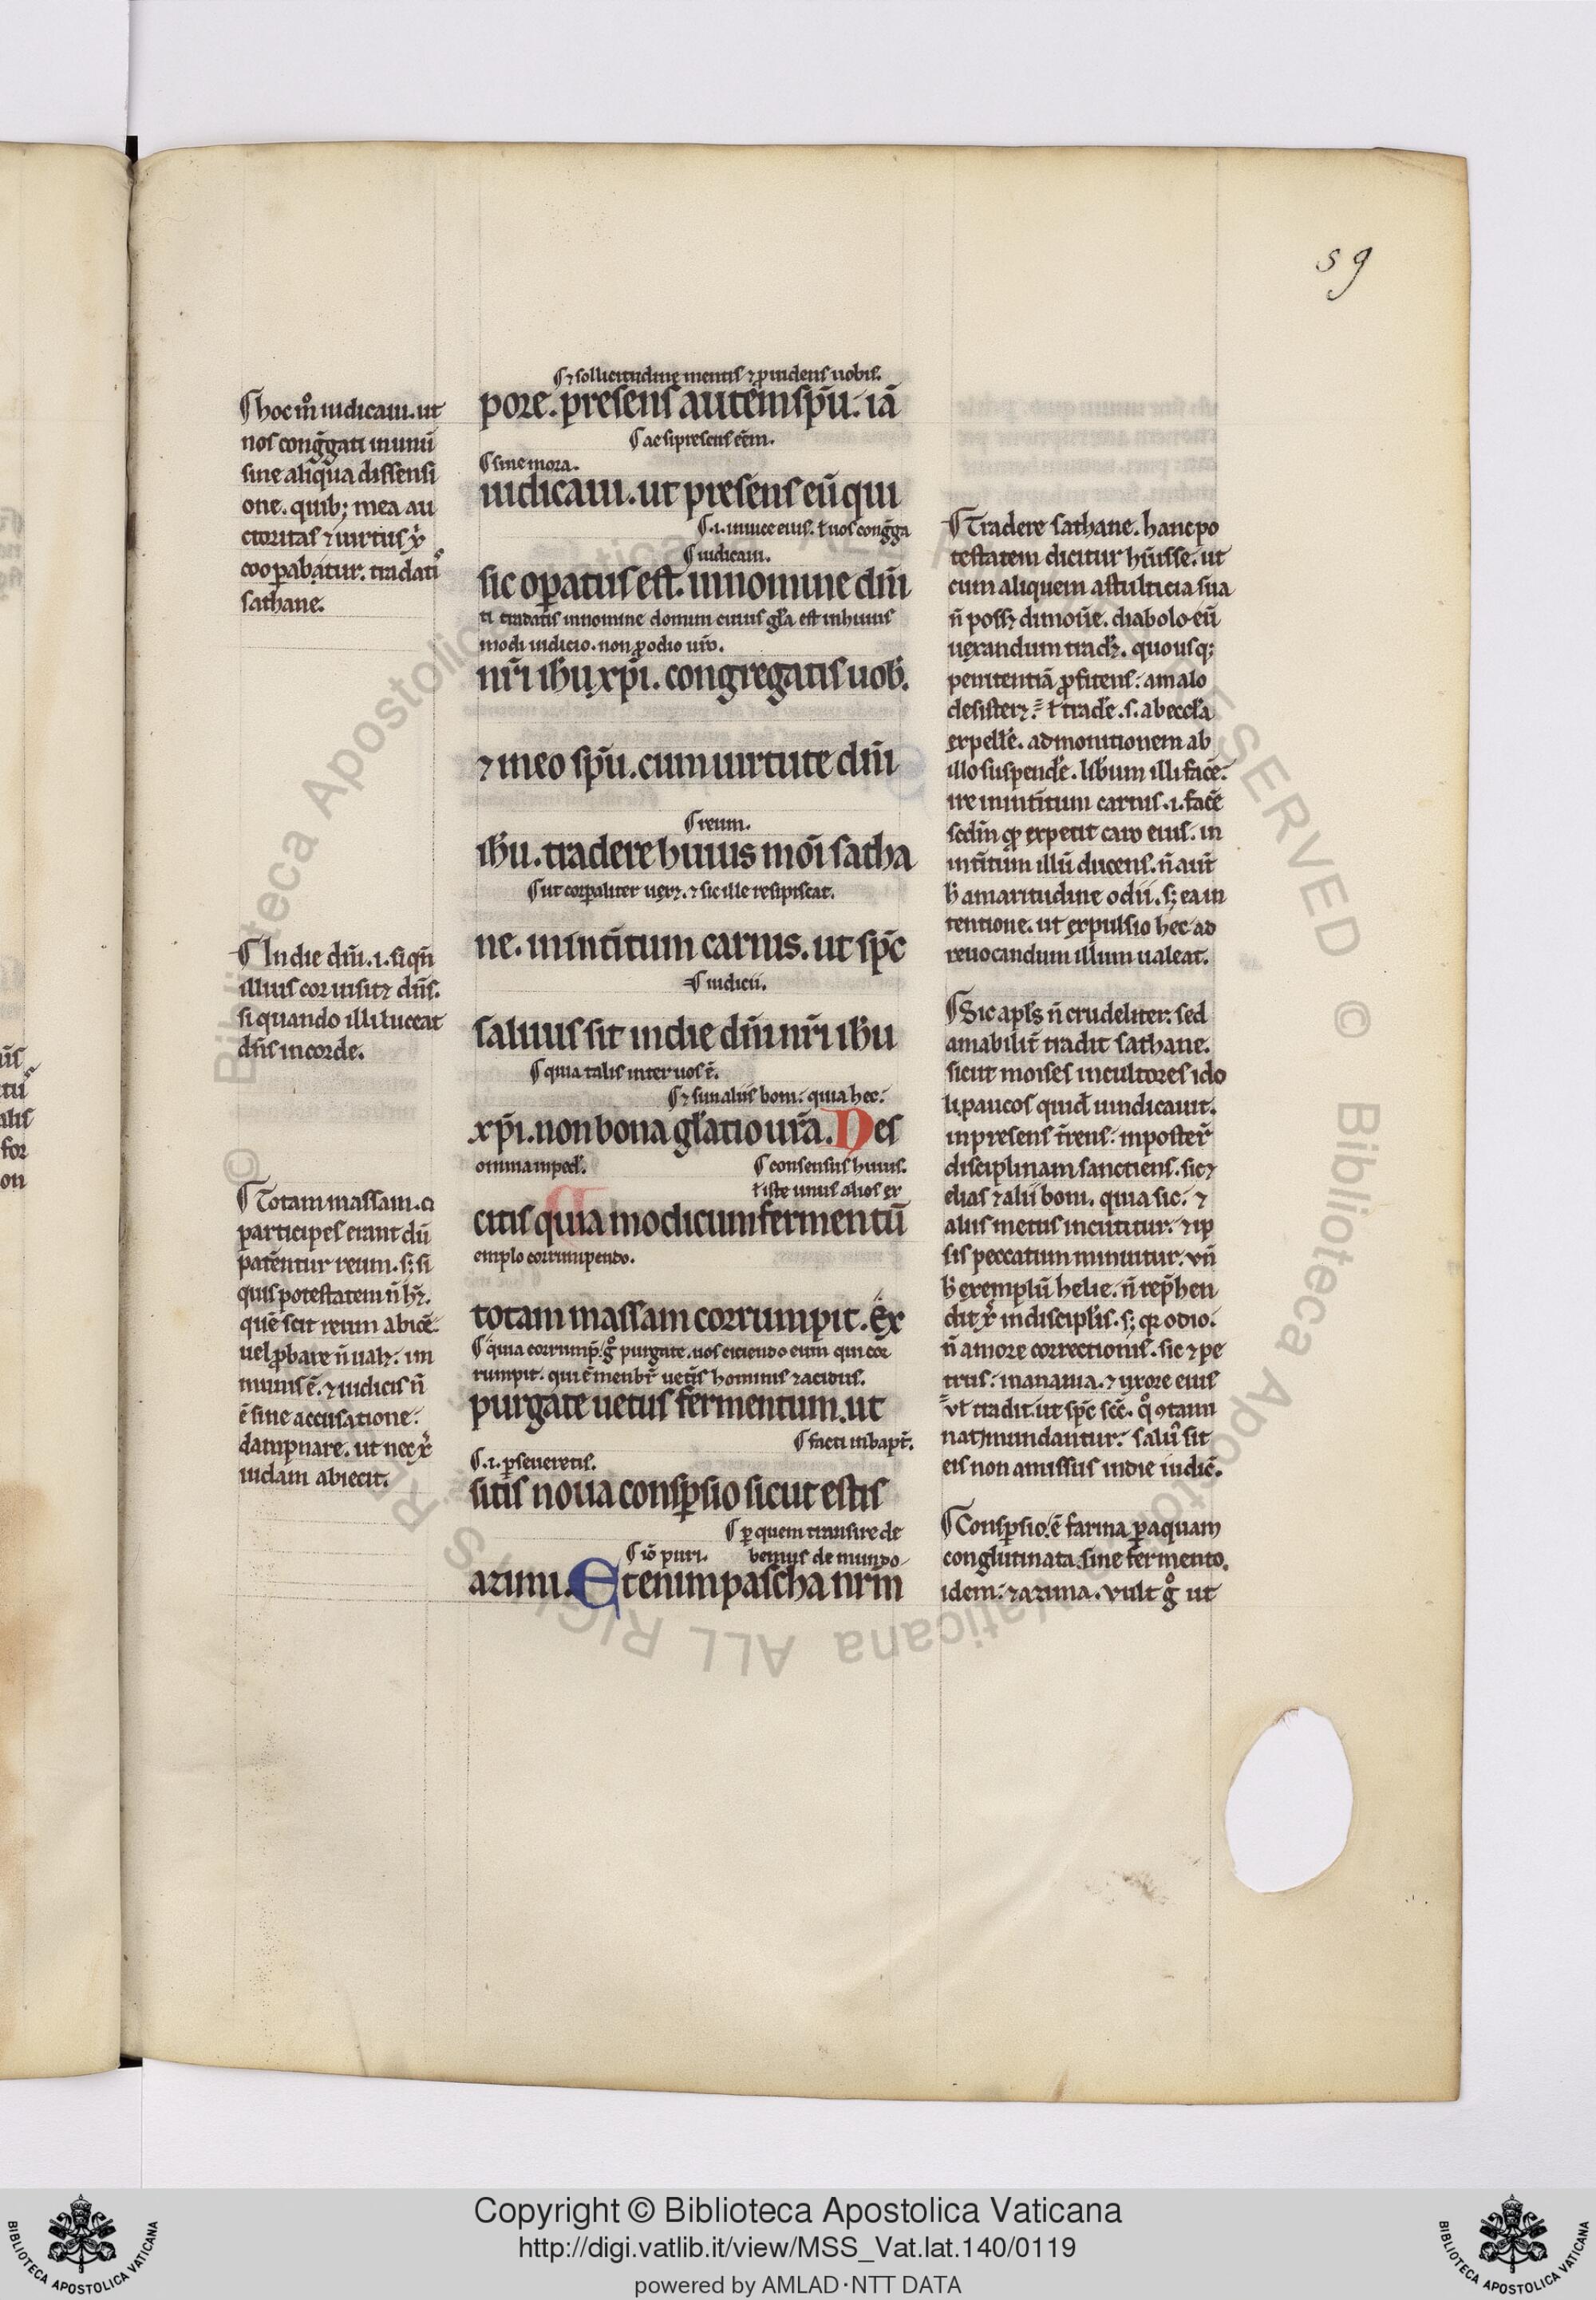 59
¶ hoc m̊ iudicaui. ut
nos cong̃gati in unũ
sine aliqua dissensi
one. quib; mea au
ctoritas ⁊ uirtus xp̄i
coop̱abatur. tradatis
sathane.
¶ In die dn̄i. .i. si qñ
illius cor uisitꝫ dn̄s.
si quando illi luceat
dn̄s in corde.
¶ Totam massam. q̃
participes erant dũ
patẽntur reum. sꝫ si
quis potestatem ñ hꝫ.
quẽ scit reum abice᷑.
uel ꝓbare ñ ualꝫ. im
munis ẽ. ⁊ iudicis ñ
ẽ sine accusatione᷑
dampnare. ut nec xp̄s
iudam abiecit.
¶ ⁊ sollicitudine mentis ⁊ ꝓuidens uobis.
pore. presens autem sp̄u. iã
¶ ac si presens eẽm.
¶ sine mora.
iudicaui. ut presens eũ qui
¶ .i. in uice eius. ł uos cong̃ga
¶ iudicaui.
sic op̱atus est. in nomine dn̄i
ti tradatis in nomine domini cuius gl̃a est in huius
modi iudicio. non ꝓ odio uro.
nr̄i ihu xp̄i. congregatis uob̃.
⁊ meo sp̄u. cum uirtute dn̄i
¶ reum.
ihu. tradere huius moi satha
¶ ut corp̱aliter uexꝫ. ⁊ sic ille resipiscat.
ne. in int̃itum carnis. ut sp̄c
¶ iudicii.
saluus sit in die dn̄i nr̄i ihu
¶ quia talis inter uos ẽ.
¶ ⁊ sunt aliis boni. quia hec
xp̄i. non bona gl̃atio ur̃a. Nes
omnia imped̃.
¶ consensus huius.
ł iste unus alios ex
citis quia modicum fermentũ
emplo corrumpendo.
totam massam corrumpit. Ex
¶ quia corrump̃. g̊ purgate. uos eiciendo eum qui cor
rumpit. qui ẽ menbr̃ uet̃is hominis ⁊ acidus.
purgate uetus fermentum. ut
¶ facti in bapt̃.
¶ .i. p̱seueretis.
sitis noua consp̱sio sicut estis
¶ p̱ quem transire de
¶ iõ puri.
bemus de mundo.
azimi. Etenim pascha nr̄m
¶ Tradere sathane. hanc po
testatem dicitur h̃uisse. ut
cum aliquem a stulticia sua
ñ possꝫ dimoũe. diabolo eũ
uexandum tradꝫ. quousq;
penitentiã ꝓfitens᷑ a malo
desisterꝫ. ł trad̃e .s. ab eccl̃a
expell̃e. admonitionem ab
illo suspend̃e. lib̃um illi face᷑
ire in int̃itum carnis .i. facẽ
scdm̃ qd̃ expetit caro eius. in
int̃itum illũ ducens. ñ aut̃
h̃ amaritudine odii. sꝫ ea in
tentione. ut expulsio hec ad
reuocandum illum ualeat.
¶ Sic apl̃s ñ crudeliter᷑ sed
amabilit̃ tradit sathane.
sicut moises in cultores ido
li paucos quid̃ uindicauit.
in presens t̃rens᷑ in poster̃
disciplinam sanctiens. sic ⁊
elias ⁊ alii boni. quia sic᷑ ⁊
aliis metus incutitur᷑ ⁊ ip̱
sis peccatum minuitur. vñ
h̃ exemplũ helie᷑ ñ rep̃hen
dit xp̄s in discipl̃is. sꝫ qr̃ odio᷑
ñ amore correctionis. sic ⁊ pe
trus᷑ in anania. ⁊ uxore eius
vł tradit ut sp̄c scẽ. q̊ ꝯtami
nati mundantur᷑ saluus sit
eis non amissus in die iudic̃.
¶ Consp̱sio. ẽ farina p̱ aquam
conglutinata sine fermento.
idem᷑ ⁊ azima. vult g̊ ut
Copyright © Biblioteca Apostolica Vaticana
http://digi.vatlib.it/view/MSS_Vat.lat.140/0119
powered by AMLAD·NTT DATA